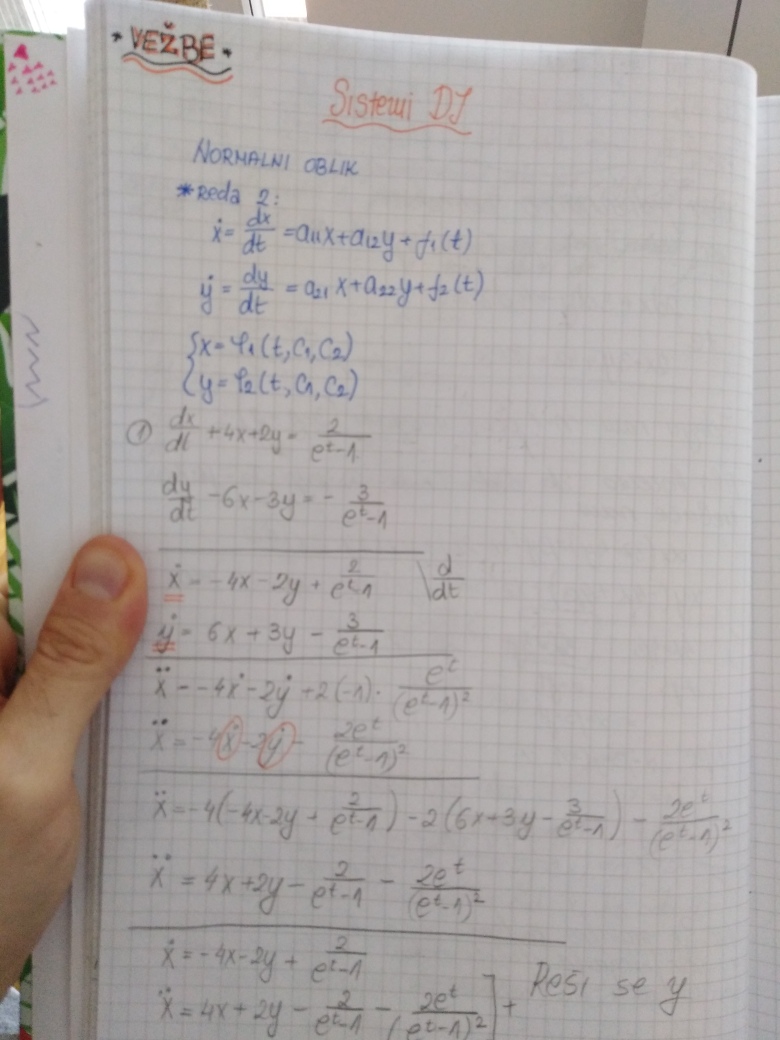 • VEŽBE •
Sistemi DJ
NORMALNI OBLIK
* Reda 2:
ẋ = dx/dt = a₁₁x + a₁₂y + f₁(t)
ẏ = dy/dt = a₂₁x + a₂₂y + f₂(t)
{x = φ₁(t, C₁, C₂)
{y = φ₂(t, C₁, C₂)
① dx/dt + 4x + 2y = 2/(eᵗ-1)
dy/dt - 6x - 3y = - 3/(eᵗ-1)
ẋ = -4x - 2y + 2/(eᵗ-1) \ d/dt
ẏ = 6x + 3y - 3/(eᵗ-1)
ẍ = -4ẋ - 2ẏ + 2(-1) · eᵗ/(eᵗ-1)²
ẍ = -4ẋ - 2ẏ - 2eᵗ/(eᵗ-1)²
ẍ = -4(-4x - 2y + 2/(eᵗ-1)) - 2(6x + 3y - 3/(eᵗ-1)) - 2eᵗ/(eᵗ-1)²
ẍ = 4x + 2y - 2/(eᵗ-1) - 2eᵗ/(eᵗ-1)²
ẋ = -4x - 2y + 2/(eᵗ-1)
ẍ = 4x + 2y - 2/(eᵗ-1) - 2eᵗ/(eᵗ-1)² ] + Reši se y